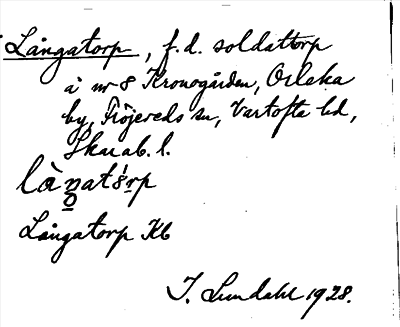 Långatorp, f.d. soldattorp
å nr 8 Kronogården, Orleka
by, Fröjereds sn, Vartofta hd,
Skarab. l.
Långatorp Kb
I. Lundahl 1928.